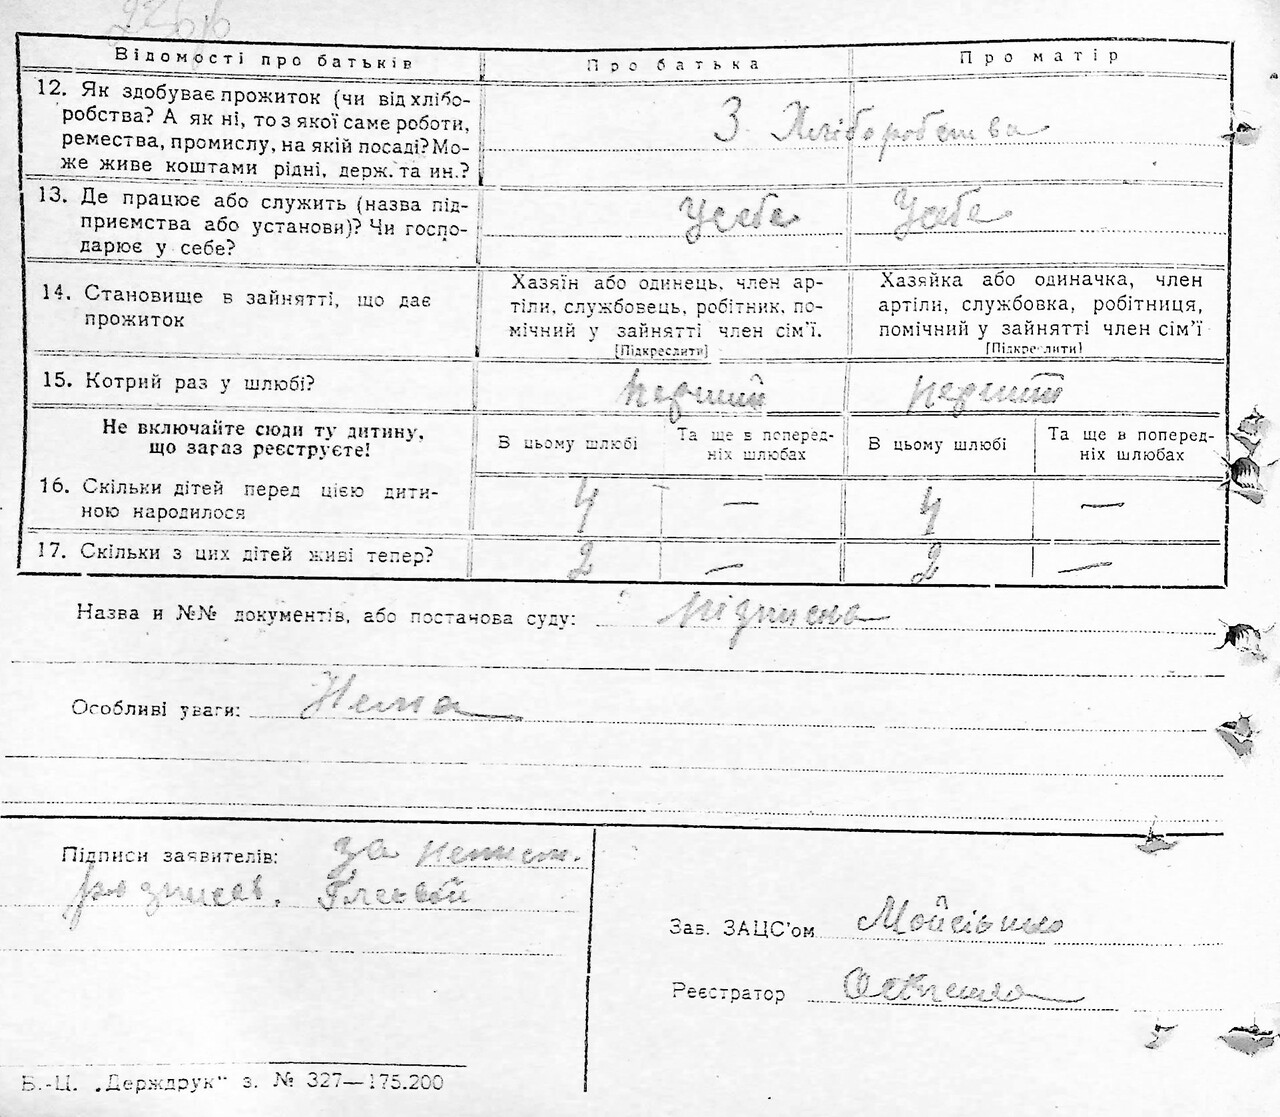 Відомості про батьків
Про батька
Про матір
12. Як здобуває прожиток (чи від хлібо-
робства? А як ні, то з якої саме роботи,
ремества, промислу, на якій посаді? Мо-
же живе коштами рідні, держ. та ин.?
З Хліборобства
13. Де працює або служить (назва під-
приємства або установи)? Чи госпо-
дарює у себе?
Усебе
Усебе
14. Становище в зайнятті, що дає
прожиток
Хазяїн або одинець, член ар-
тіли, службовець, робітник, по-
мічний у зайнятті член сім'ї.
[Підкреслити]
Хазяйка або одиначка, член
артіли, службовка, робітниця,
помічний у зайнятті член сім'ї
[Підкреслити]
15. Котрий раз у шлюбі?
перший
перший
Не включайте сюди ту дитину,
що загаз реєструєте!
В цьому шлюбі
Та ще в поперед-
ніх шлюбах
В цьому шлюбі
Та ще в поперед-
ніх шлюбах
16. Скільки дітей перед цією дити-
ною народилося
4
—
4
—
17. Скільки з цих дітей живі тепер?
2
—
2
—
Назва и №№ документів, або постанова суду:
Особливі уваги: Нема
Підписи заявителів: за неписм.
розписав.
Зав. ЗАЦС'ом
Реєстратор
Б.-Ц. „Держдрук" з. № 327—175.200